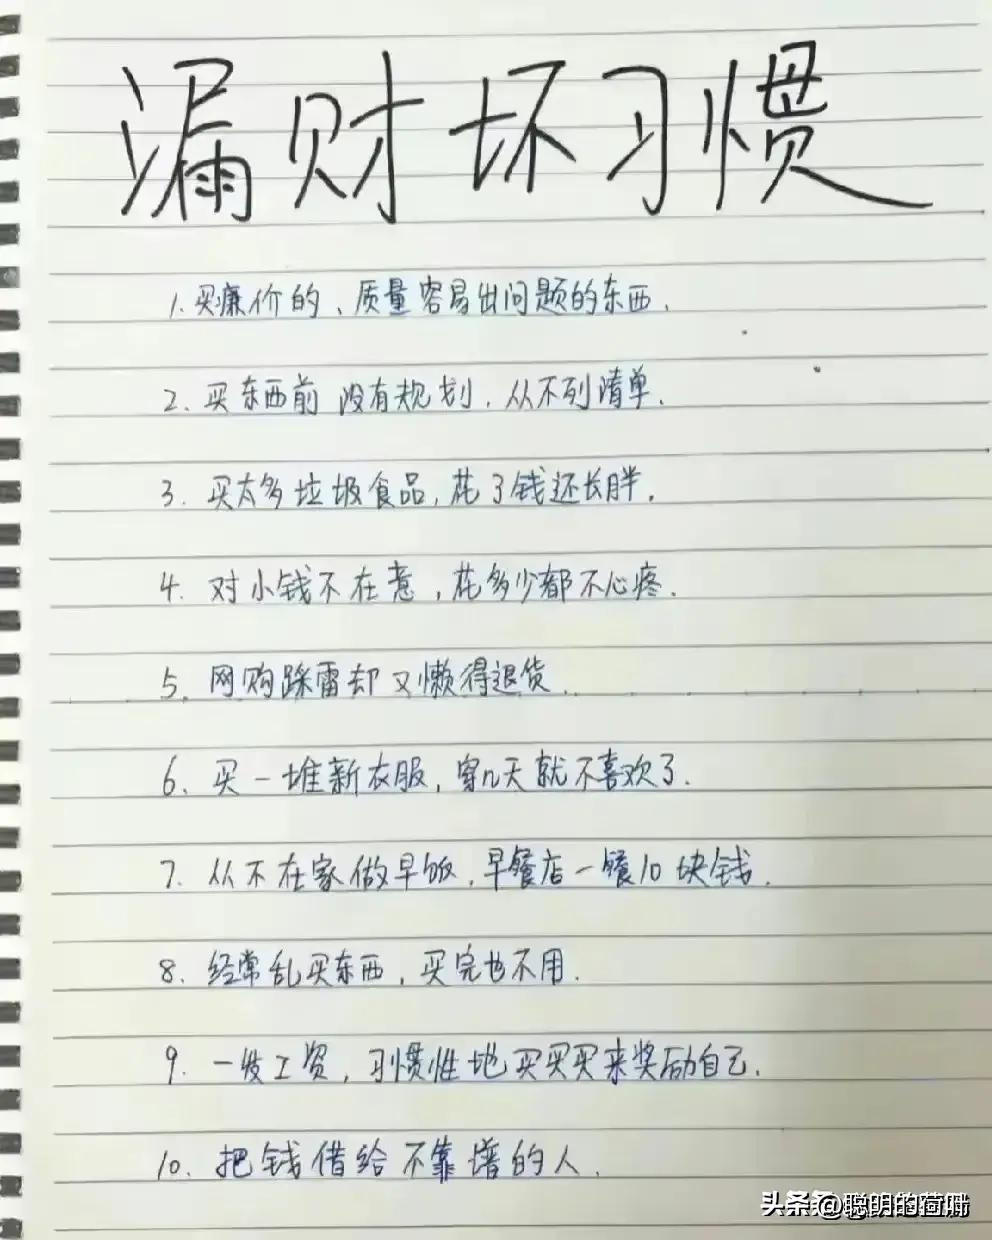 漏财坏习惯
1.买廉价的、质量容易出问题的东西.
2.买东西前没有规划.从不列清单.
3.买太多垃圾食品,花了钱还长胖.
4.对小钱不在意,花多少都不心疼.
5.网购踩雷却又懒得退货.
6.买一堆新衣服,穿几天就不喜欢了.
7.从不在家做早饭,早餐店一餐10块钱.
8.经常乱买东西,买完也不用.
9.一发工资,习惯性地买买买来奖励自己.
10.把钱借给不靠谱的人.
头条 @聪明的